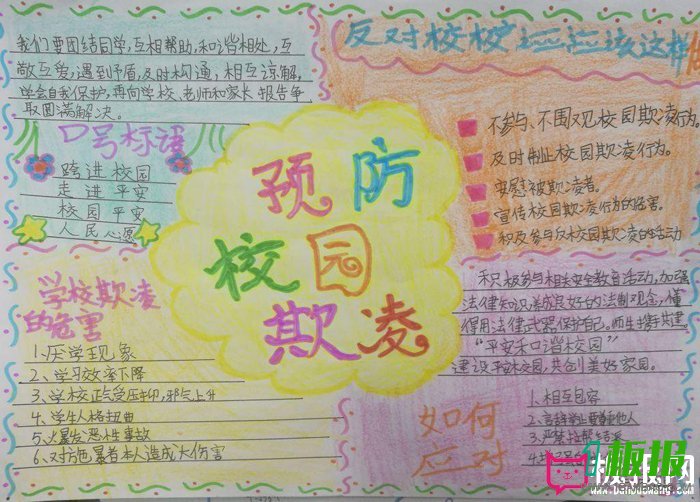 我们要团结同学,互相帮助,和谐相处,互
敬互爱,遇到矛盾,及时沟通,相互谅解,
学会自我保护,再向学校、老师和家长报告争
取圆满解决。
口号标语
跨进校园
走进平安
校园平安
人民心愿
反对校
应该这样
不参与、不围观校园欺凌行为。
及时制止校园欺凌行为。
安慰被欺凌者。
宣传校园欺凌行为的危害。
积极参与反校园欺凌的活动
预防
校园
欺凌
学校欺凌
的危害
1、厌学现象
2、学习效率下降
3、学校正气受压抑,邪气上升
4、学生人格扭曲
5、火暴发恶性事故
6、对方施暴者本人造成大伤害
积极参与相关安全教育活动,加强
法律知识,养成良好的法制观念,懂
得用法律武器保护自己。师生携手共建
“平安和谐校园”
建设平安校园,共创美好家园。
如何
应对
1、相互包容
2、言辞举止要尊重他人
3、严禁拉帮结派
板报网
www.banbaowang.com